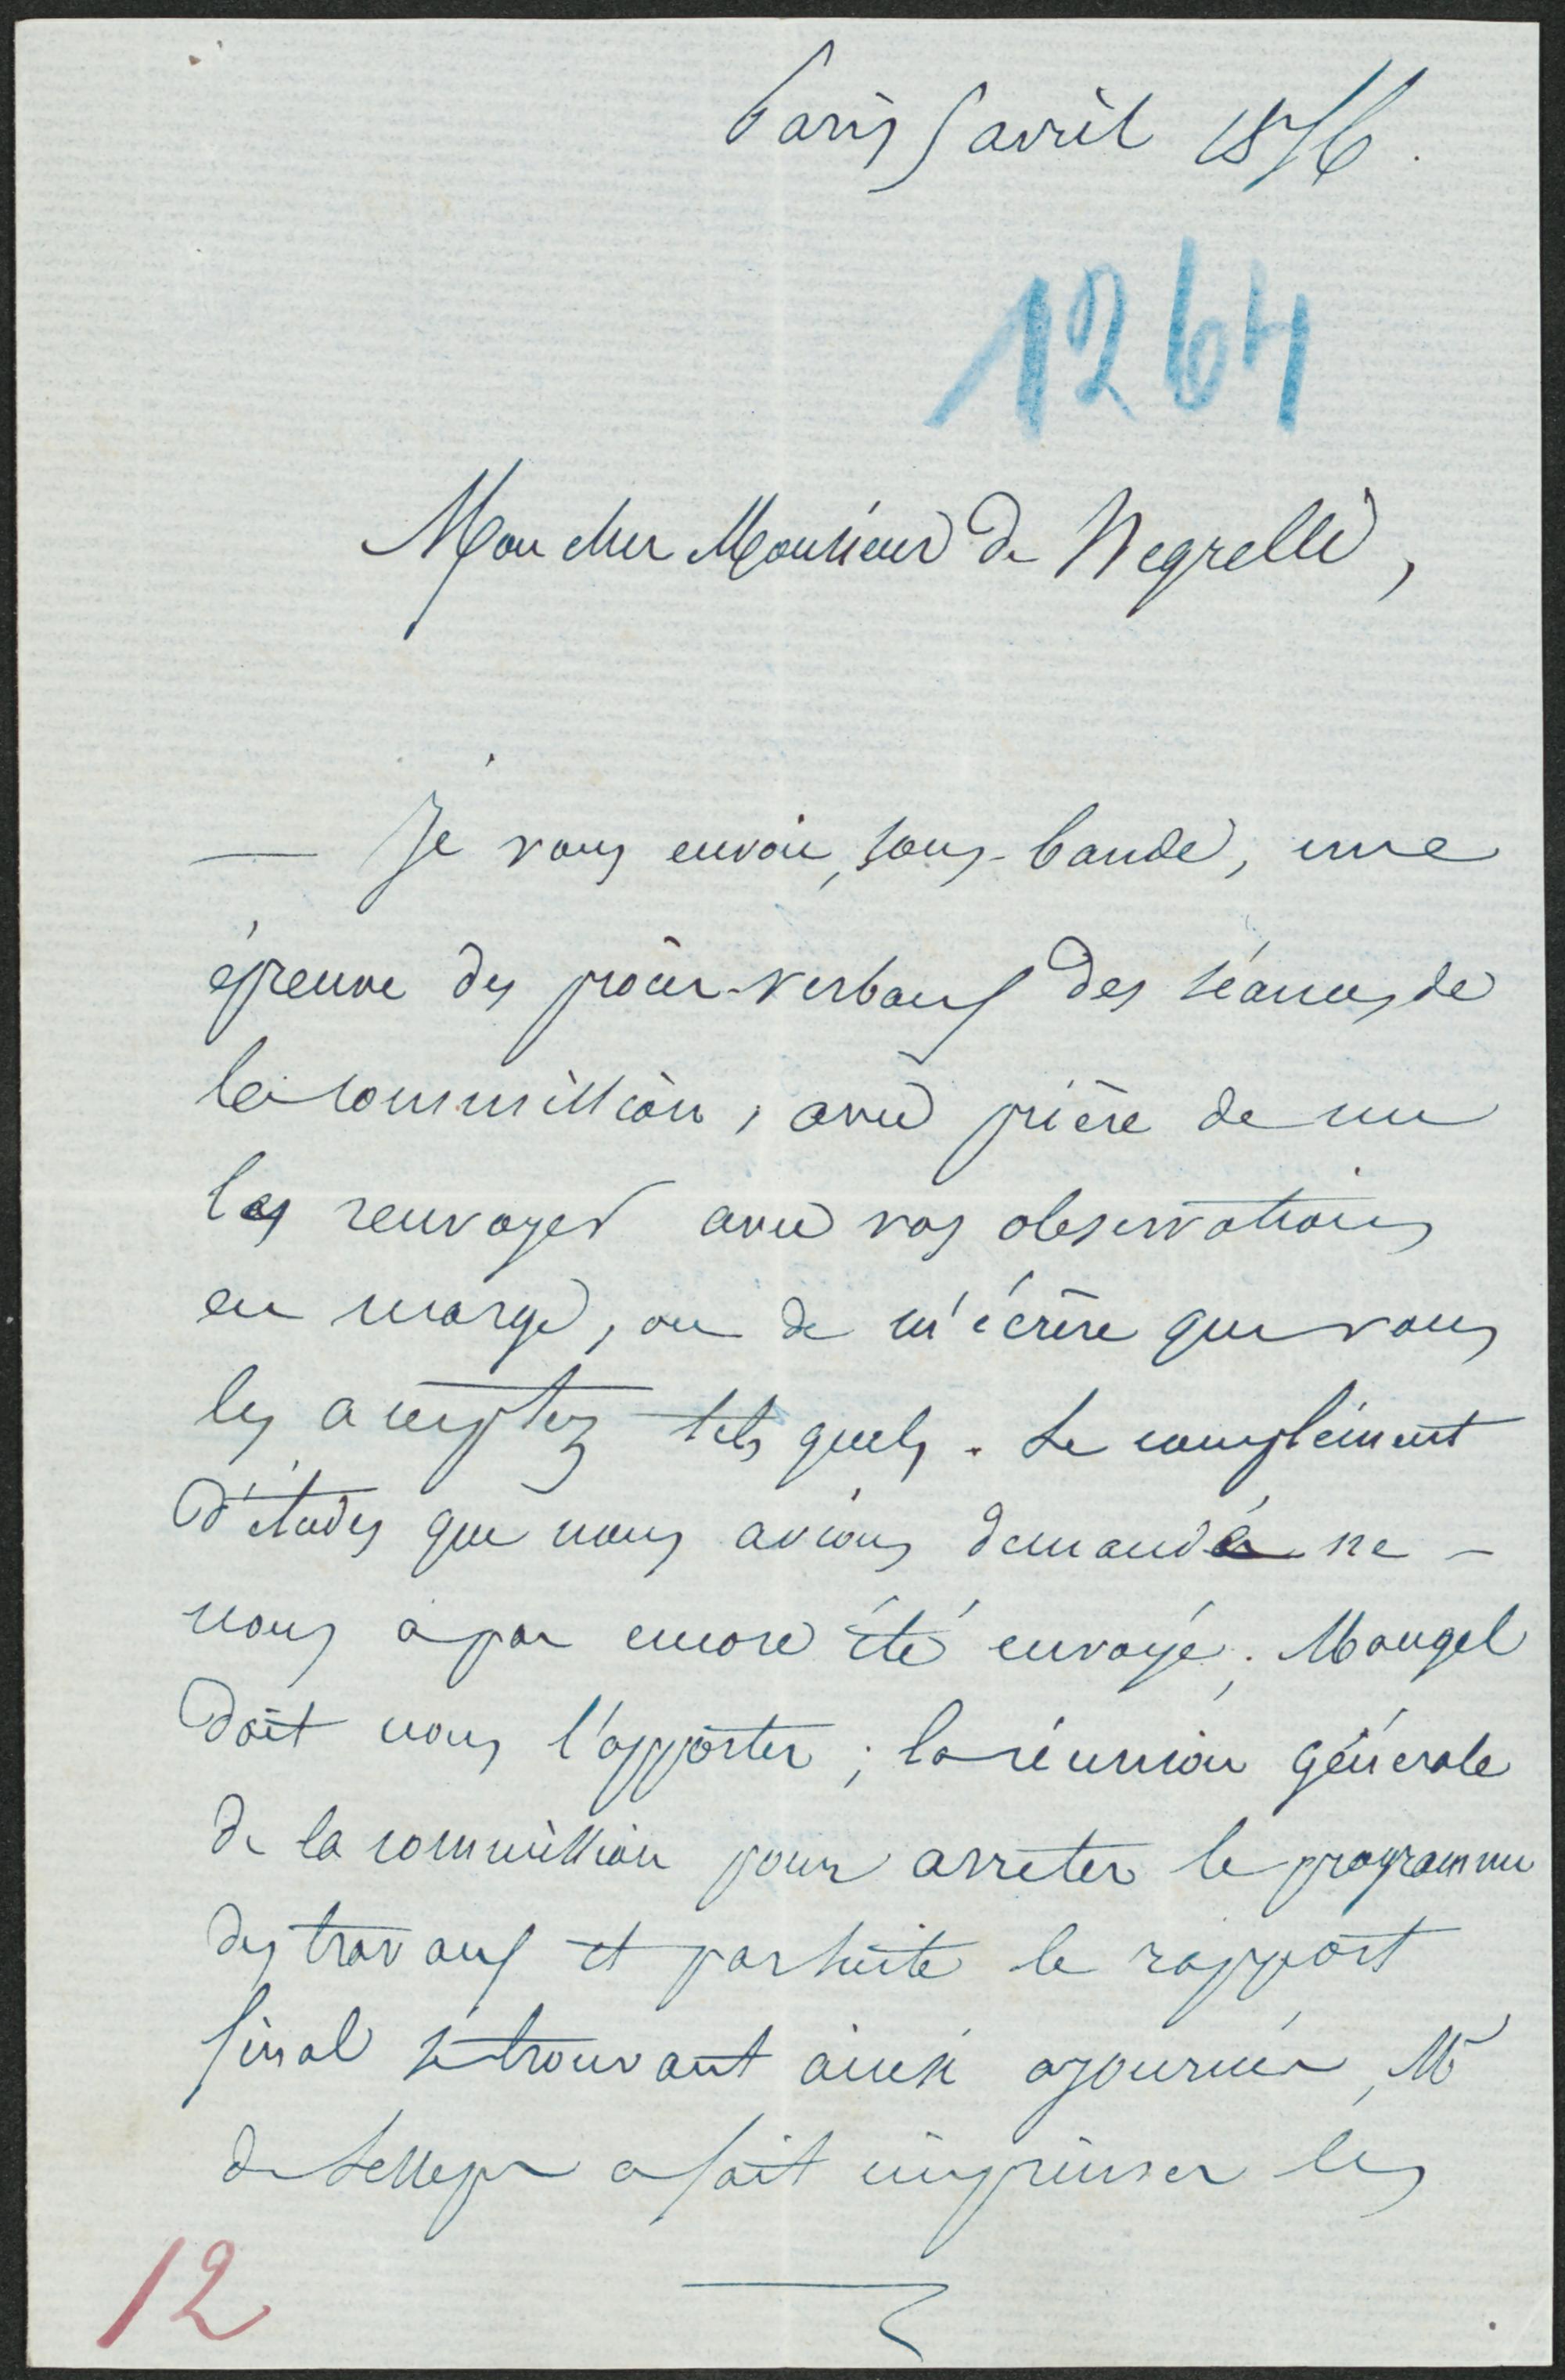 Paris 5 avril 1856.
1264
Mon cher Monsieur de Negrelli,
— Je vous envoie, sous-bande, une
épreuve des procès-verbaux des séances de
la commission, avec prière de me
les renvoyer avec vos observations
en marge, ou de m'écrire que vous
les acceptez tels quels. Le complément
d'études que nous avions demandé ne -
nous a pas encore été envoyé; Mougel
doit nous l'apporter; la réunion générale
de la commission pour arreter le programme
des travaux et par suite le rapport
final se trouvant ainsi ajournés, Mr
de Lesseps a fait imprimer les
12